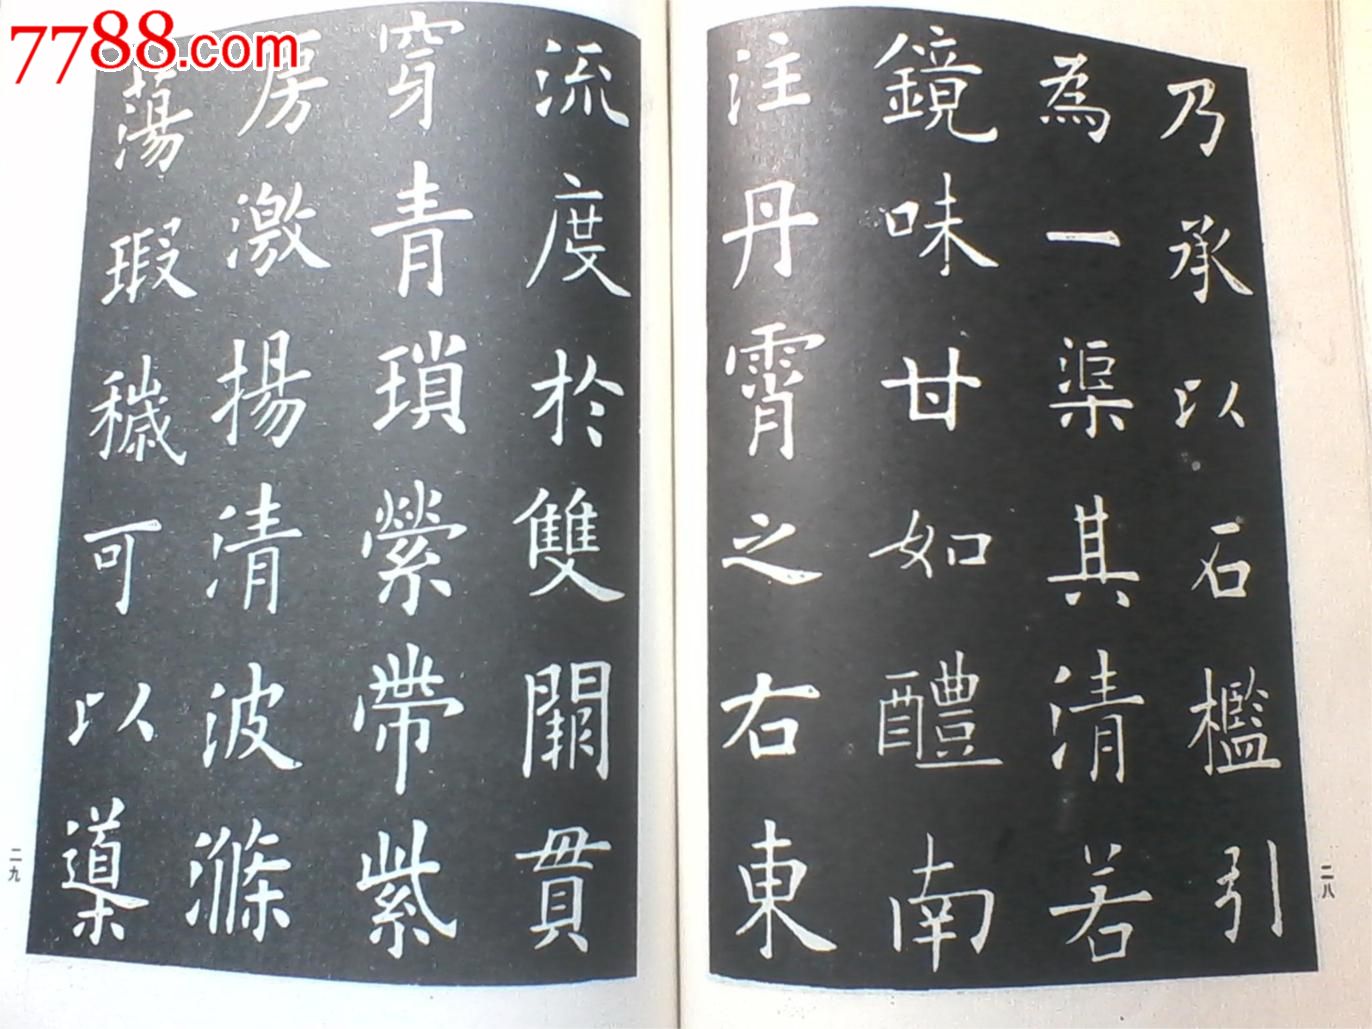 7788.com
乃承以石檻引
為一渠其清若
鏡味甘如醴南
注丹霄之右東
二八
流度於雙闕貫
穿青瑣縈帶紫
房激揚清波滌
蕩瑕穢可以導
二九